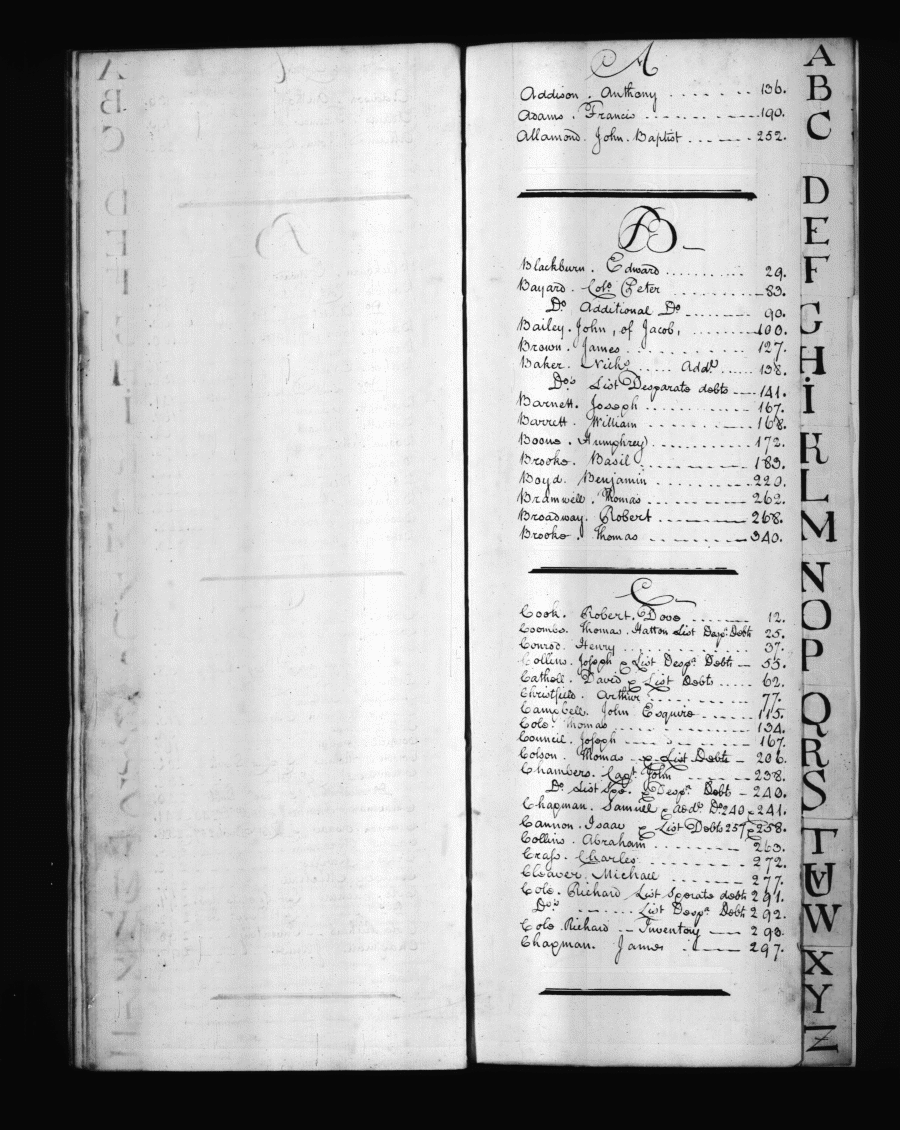 A
Addison. Anthony 136.
Adams. Francis 190.
Allamond. John. Baptist 252.
B
Blackburn. Edward 29.
Bayard. Colo. Peter 83.
Do. Additional Do. 90.
Bailey. John, of Jacob, 100.
Brown. James 127.
Baker. Nichs. Addl. 138.
Do's List Desparate debts 141.
Barnett. Joseph 167.
Barrett. William 168.
Boone. Humphrey 172.
Brooke. Basil 183.
Boyd. Benjamin 220.
Bramwell. Thomas 262.
Broadway. Robert 268.
Brooke. Thomas 340.
C
Cook. Robert. Dove 12.
Coombs. Thomas. Hatton List Desp. Debts 25.
Conrod. Henry 37.
Collins. Joseph & List Despr. Debts 55.
Catholl. David & List Debts 62.
Christfield. Arthur 77.
Campbell. John Esquire 115.
Cole. Thomas 134.
Council. Joseph 167.
Colson. Thomas & List Debts 206.
Chambers. Capt. John 238.
Do. List Spe. & Despr. Debts 240.
Chapman. Samuel & add. Do. 240 & 241.
Cannon. Isaac & List Debts 257 & 258.
Collins. Abraham 263.
Crass. Charles 272.
Cleaver. Michael 277.
Cole. Richard List Sperate debts 291.
Do's List Despr. Debts 292.
Cole. Richard Inventory 290.
Chapman. James 297.
A
B
C
D
E
F
G
H
I
K
L
M
N
O
P
Q
R
S
T
UV
W
X
Y
Z